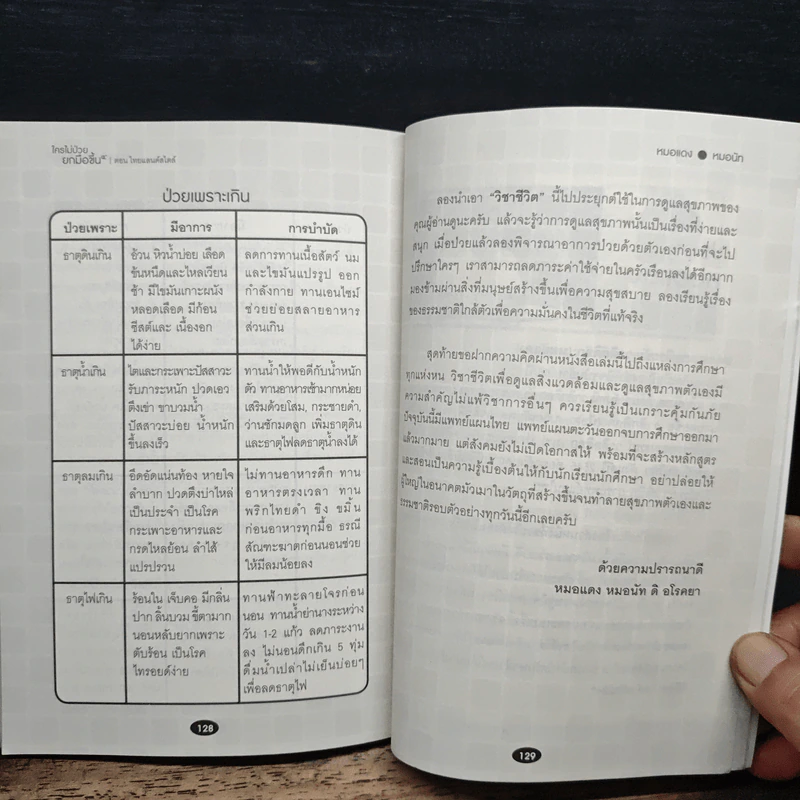 ใครไม่ป่วย
ยกมือขึ้น | ตอน ไทยแลนด์สไตล์
ป่วยเพราะเกิน
ป่วยเพราะ มีอาการ การบำบัด
ธาตุดินเกิน
อ้วน หิวน้ำบ่อย เลือด
ข้นหนืดและไหลเวียน
ช้า มีไขมันเกาะผนัง
หลอดเลือด มีก้อน
ซีสต์และ เนื้องอก
ได้ง่าย
ลดการทานเนื้อสัตว์ นม
และไขมันแปรรูป ออก
กำลังกาย ทานเอนไซม์
ช่วยย่อยสลายอาหาร
ส่วนเกิน
ธาตุน้ำเกิน
ไตและกระเพาะปัสสาวะ
รับภาระหนัก ปวดเอว
ตึงเข่า ขาบวมน้ำ
ปัสสาวะบ่อย น้ำหนัก
ขึ้นลงเร็ว
ทานน้ำให้พอดีกับน้ำหนัก
ตัว ทานอาหารเช้ามากหน่อย
เสริมด้วยโสม, กระชายดำ,
ว่านชักมดลูก เพิ่มธาตุดิน
และธาตุไฟลดธาตุน้ำลงได้
ธาตุลมเกิน
อึดอัดแน่นท้อง หายใจ
ลำบาก ปวดตึงบ่าไหล่
เป็นประจำ เป็นโรค
กระเพาะอาหารและ
กรดไหลย้อน ลำไส้
แปรปรวน
ไม่ทานอาหารดึก ทาน
อาหารตรงเวลา ทาน
พริกไทยดำ ขิง ขมิ้น
ก่อนอาหารทุกมื้อ ธรณี
สัณฑะฆาตก่อนนอนช่วย
ให้มีลมน้อยลง
ธาตุไฟเกิน
ร้อนใน เจ็บคอ มีกลิ่น
ปาก ลิ้นบวม ขี้ตามาก
นอนหลับยากเพราะ
ตับร้อน เป็นโรค
ไทรอยด์ง่าย
ทานฟ้าทะลายโจรก่อน
นอน ทานน้ำย่านางระหว่าง
วัน 1-2 แก้ว ลดภาระงาน
ลง ไม่นอนดึกเกิน 5 ทุ่ม
ดื่มน้ำเปล่าไม่เย็นบ่อยๆ
เพื่อลดธาตุไฟ
128
หมอแดง ● หมอนัท
ลองนำเอา “วิชาชีวิต” นี้ไปประยุกต์ใช้ในการดูแลสุขภาพของ
คุณผู้อ่านดูนะครับ แล้วจะรู้ว่าการดูแลสุขภาพนั้นเป็นเรื่องที่ง่ายและ
สนุก เมื่อป่วยแล้วลองพิจารณาอาการป่วยด้วยตัวเองก่อนที่จะไป
ปรึกษาใครๆ เราสามารถลดภาระค่าใช้จ่ายในครัวเรือนลงได้อีกมาก
มองข้ามผ่านสิ่งที่มนุษย์สร้างขึ้นเพื่อความสุขสบาย ลองเรียนรู้เรื่อง
ของธรรมชาติใกล้ตัวเพื่อความมั่นคงในชีวิตที่แท้จริง
สุดท้ายขอฝากความคิดผ่านหนังสือเล่มนี้ไปถึงแหล่งการศึกษา
ทุกแห่งหน วิชาชีวิตเพื่อดูแลสิ่งแวดล้อมและดูแลสุขภาพตัวเองมี
ความสำคัญไม่แพ้วิชาการอื่นๆ ควรเรียนรู้เป็นเกราะคุ้มกันภัย
ปัจจุบันนี้มีแพทย์แผนไทย แพทย์แผนตะวันออกจบการศึกษาออกมา
แล้วมากมาย แต่สังคมยังไม่เปิดโอกาสให้ พร้อมที่จะสร้างหลักสูตร
และสอนเป็นความรู้เบื้องต้นให้กับนักเรียนนักศึกษา อย่าปล่อยให้
ผู้ใหญ่ในอนาคตมัวเมาในวัตถุที่สร้างขึ้นจนทำลายสุขภาพตัวเองและ
ธรรมชาติรอบตัวอย่างทุกวันนี้อีกเลยครับ
ด้วยความปรารถนาดี
หมอแดง หมอนัท ดิ อโรคยา
129